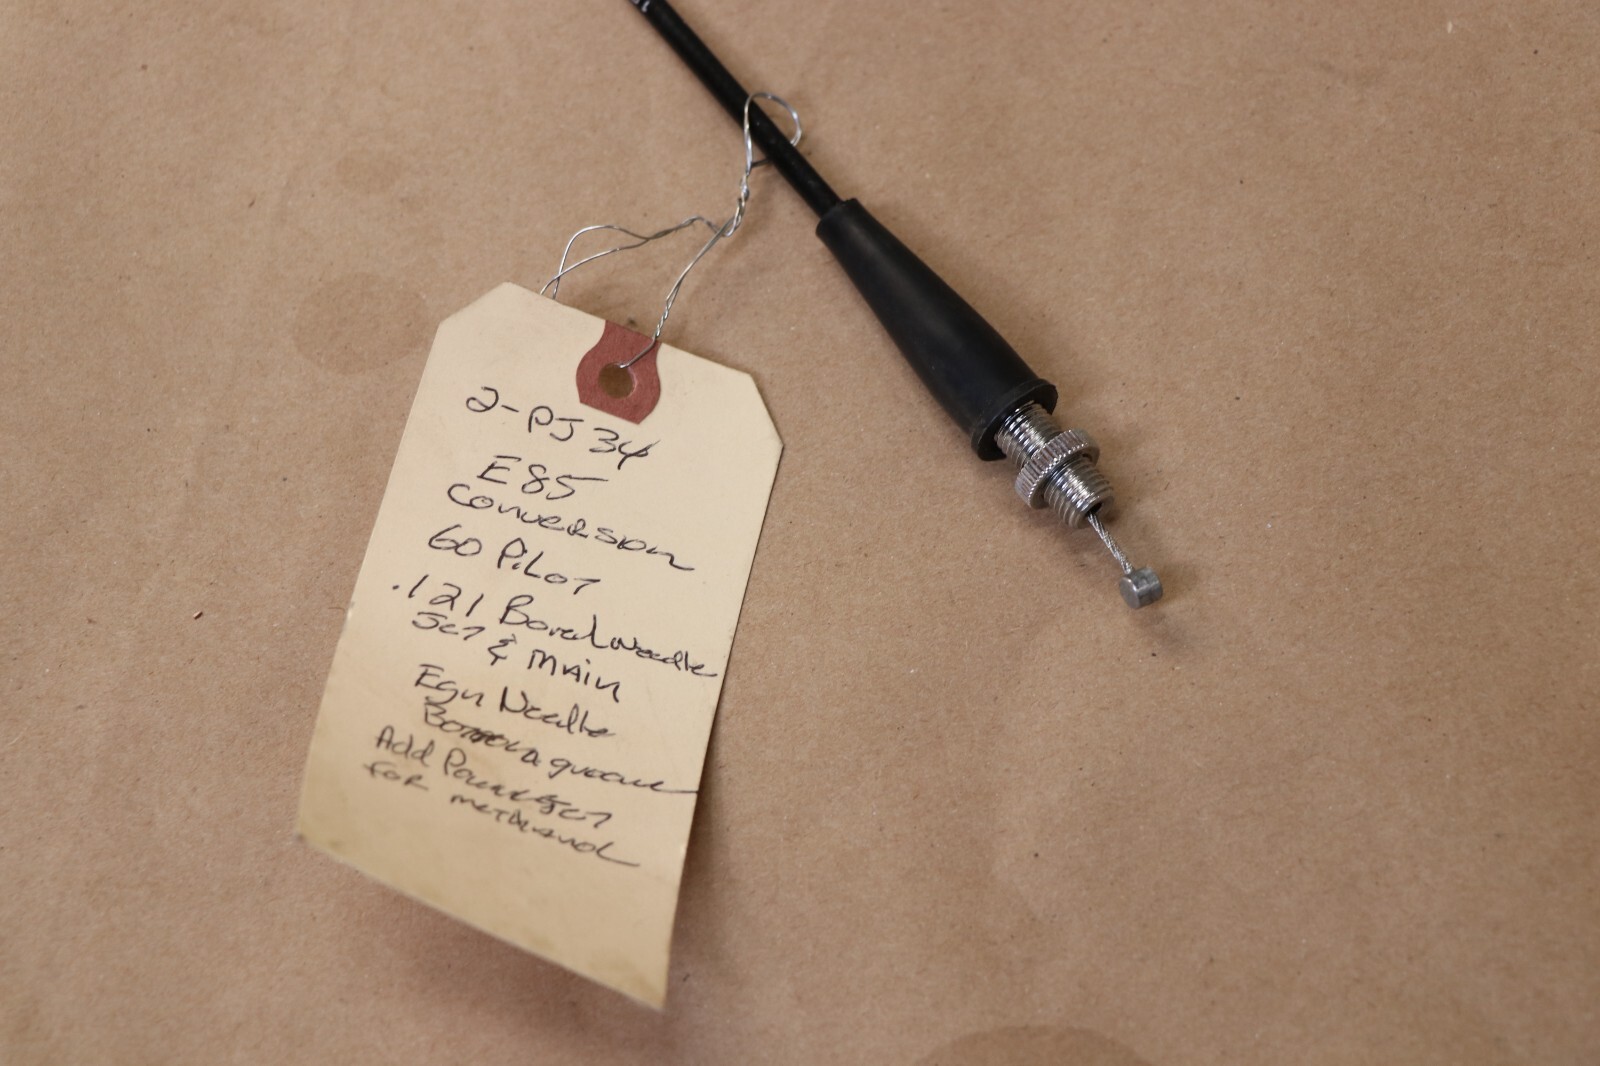 2-PJ 34
E85
Conversion
60 Pilot
.121 Bored Needle
Jet & Main
Egn Needle
Bottom groove
Add Powerjet
for methanol